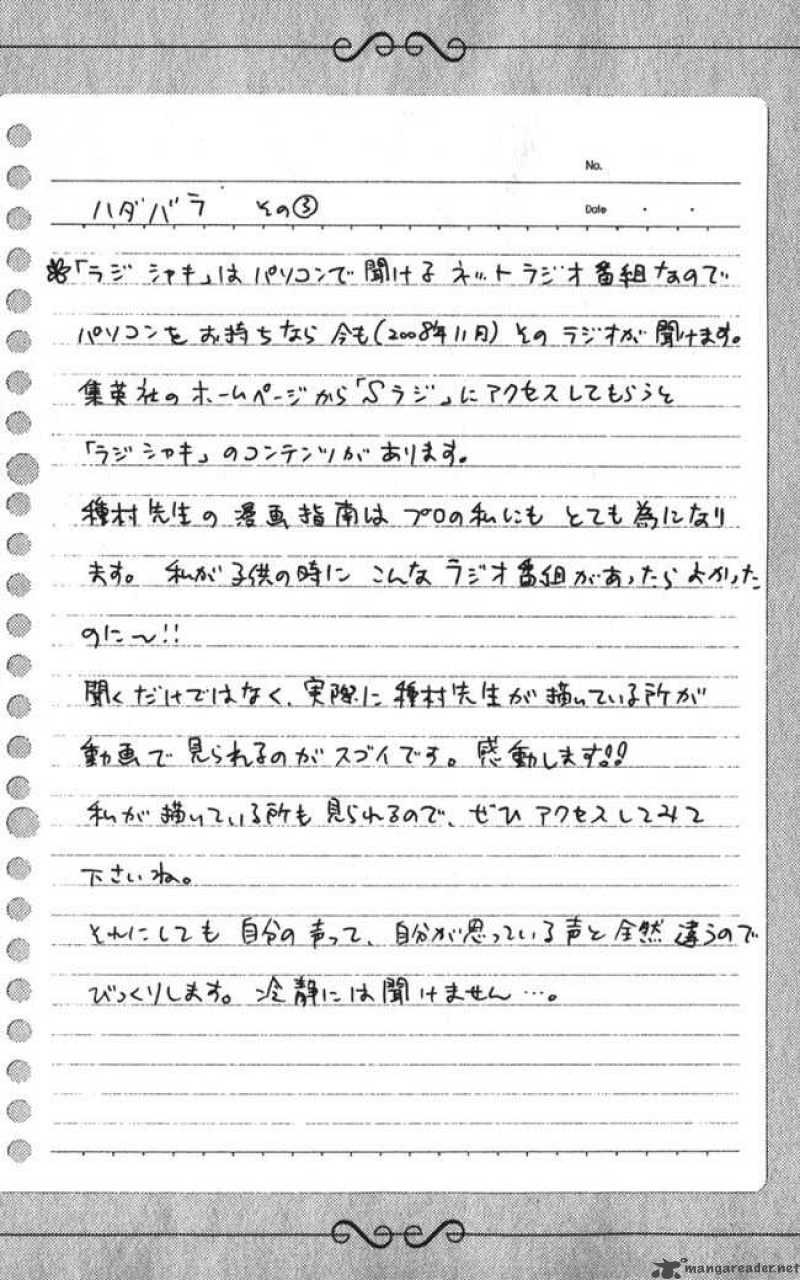 No.
ハダバラ その③
Date ・ ・
「ラジシャキ」はパソコンで聞けるネットラジオ番組なので
パソコンをお持ちなら今も(2008年11月)そのラジオが聞けます。
集英社のホームページから「Sラジ」にアクセスしてもらうと
「ラジシャキ」のコンテンツがあります。
種村先生の漫画指南はプロの私にもとても為になり
ます。私が子供の時にこんなラジオ番組があったらよかった
のに〜!!
聞くだけではなく、実際に種村先生が描いている所が
動画で見られるのがスゴイです。感動します!!
私が描いている所も見られるので、ぜひアクセスしてみて
下さいね。
それにしても自分の声って、自分が思っている声と全然違うので
びっくりします。冷静には聞けません…。
mangareader.net